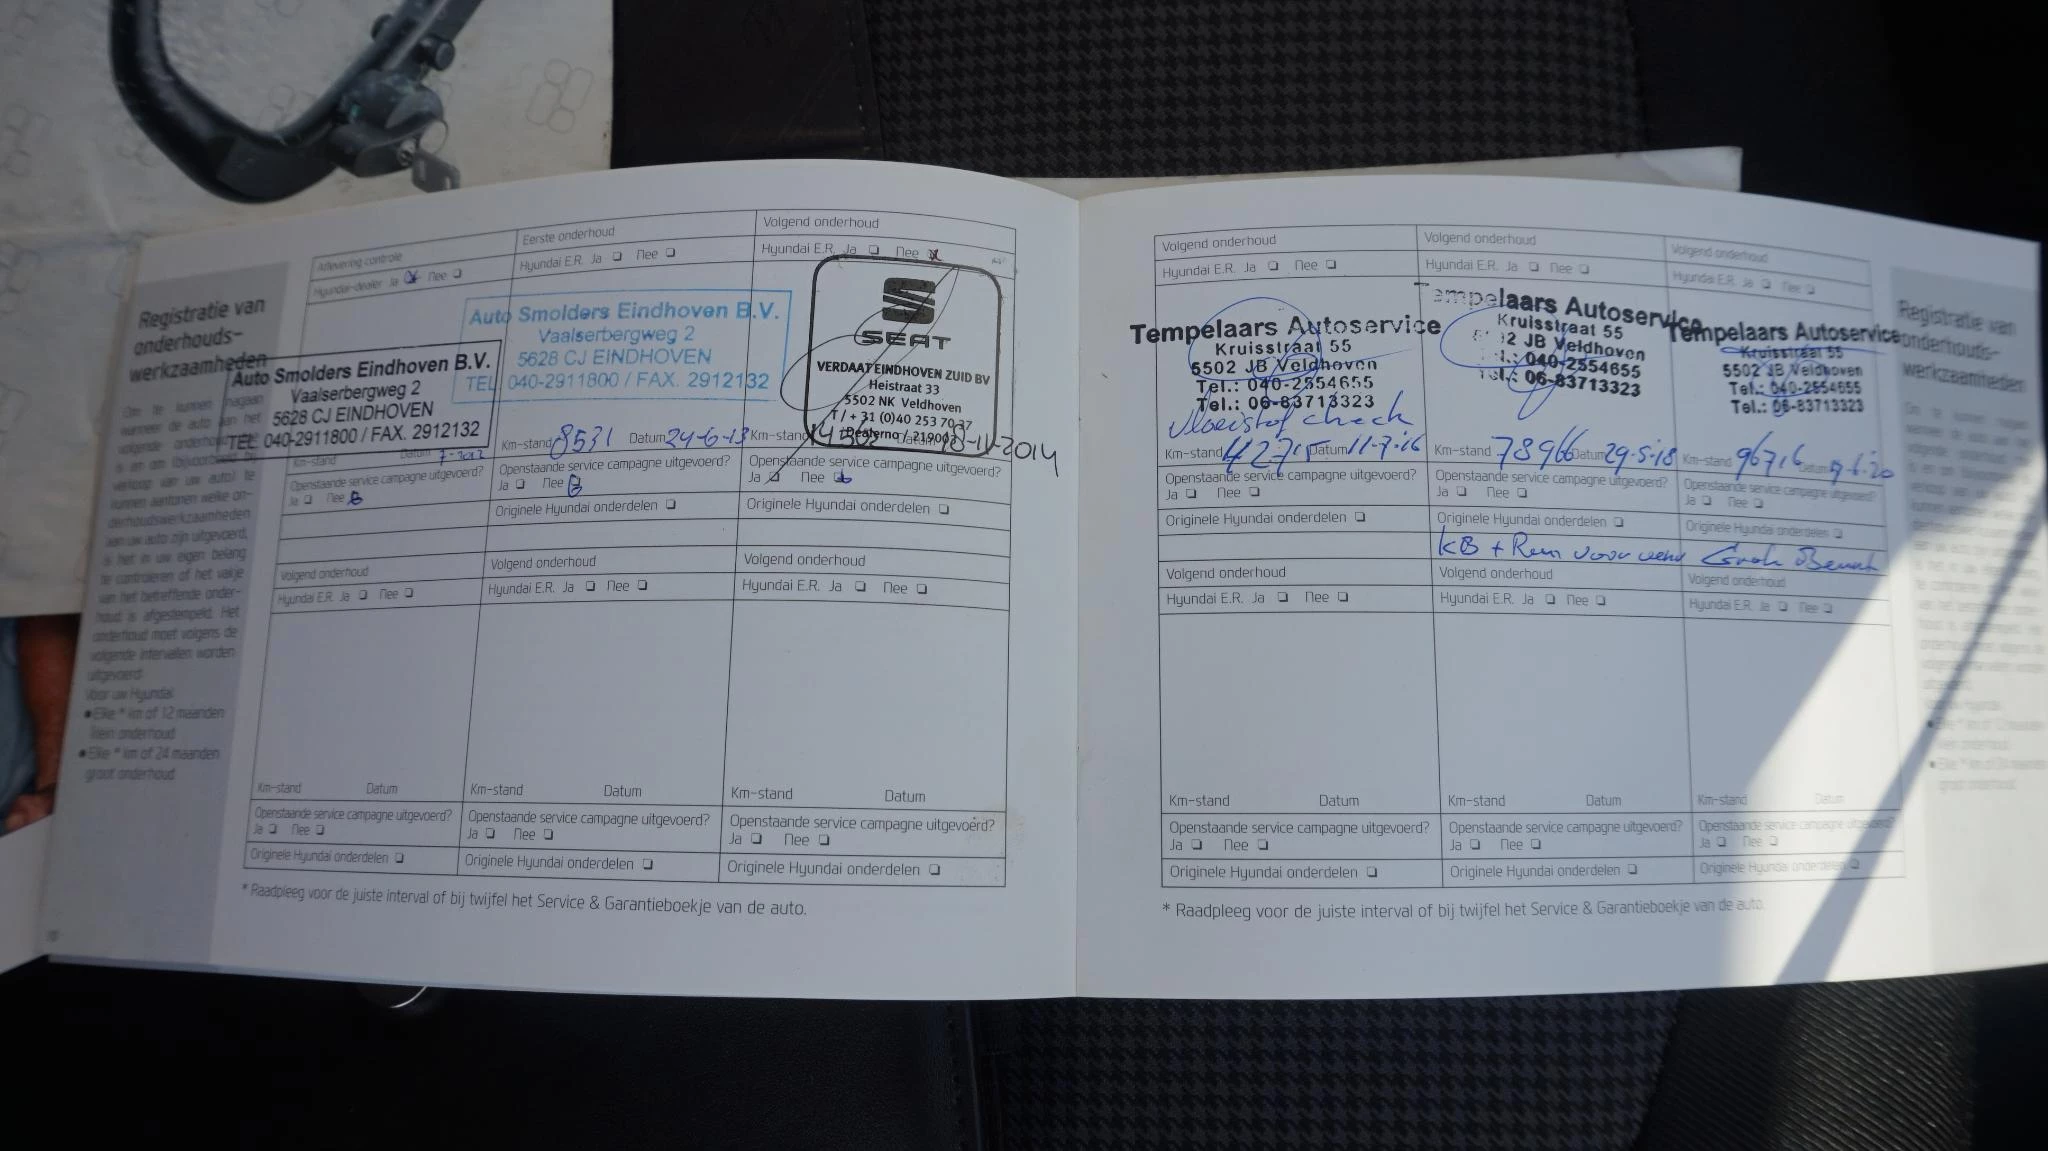 Registratie van
onderhouds-
werkzaamheden
Om te kunnen nagaan
wanneer de auto aan het
volgende onderhoud toe
is en om (bijvoorbeeld bij
verkoop van uw auto) te
kunnen aantonen welke on-
derhoudswerkzaamheden
aan uw auto zijn uitgevoerd,
is het in uw eigen belang
te controleren of het vakje
van het betreffende onder-
houd is afgestempeld. Het
onderhoud moet volgens de
volgende intervallen worden
uitgevoerd:
Voor uw Hyundai:
• Elke * km of 12 maanden
klein onderhoud
• Elke * km of 24 maanden
groot onderhoud
Aflevering controle
Hyundai-dealer Ja Nee
Auto Smolders Eindhoven B.V.
Vaalserbergweg 2
5628 CJ EINDHOVEN
TEL. 040-2911800 / FAX. 2912132
Km-stand Datum 7-2012
Openstaande service campagne uitgevoerd?
Ja Nee
Eerste onderhoud
Hyundai E.R. Ja Nee
Auto Smolders Eindhoven B.V.
Vaalserbergweg 2
5628 CJ EINDHOVEN
TEL. 040-2911800 / FAX. 2912132
Km-stand 8531 Datum 24-6-13
Openstaande service campagne uitgevoerd?
Ja Nee
Originele Hyundai onderdelen
Volgend onderhoud
Hyundai E.R. Ja Nee
SEAT
VERDAAT EINDHOVEN ZUID BV
Heistraat 33
5502 NK Veldhoven
T / + 31 (0)40 253 70 37
Dealerno / 219003
Km-stand Datum 18-11-2014
Openstaande service campagne uitgevoerd?
Ja Nee
Originele Hyundai onderdelen
Volgend onderhoud
Hyundai E.R. Ja Nee
Km-stand Datum
Openstaande service campagne uitgevoerd?
Ja Nee
Originele Hyundai onderdelen
Volgend onderhoud
Hyundai E.R. Ja Nee
Km-stand Datum
Openstaande service campagne uitgevoerd?
Ja Nee
Originele Hyundai onderdelen
Volgend onderhoud
Hyundai E.R. Ja Nee
Km-stand Datum
Openstaande service campagne uitgevoerd?
Ja Nee
Originele Hyundai onderdelen
* Raadpleeg voor de juiste interval of bij twijfel het Service & Garantieboekje van de auto.
Volgend onderhoud
Hyundai E.R. Ja Nee
Tempelaars Autoservice
Kruisstraat 55
5502 JB Veldhoven
Tel.: 040-2554655
Tel.: 06-83713323
Vloeistof check
Km-stand 42715 Datum 11-7-16
Openstaande service campagne uitgevoerd?
Ja Nee
Originele Hyundai onderdelen
Volgend onderhoud
Hyundai E.R. Ja Nee
Tempelaars Autoservice
Kruisstraat 55
2 JB Veldhoven
040-2554655
Tel.: 06-83713323
Km-stand 78966 Datum 29-5-18
Openstaande service campagne uitgevoerd?
Ja Nee
Originele Hyundai onderdelen
KB + Rem voor
Volgend onderhoud
Hyundai E.R. Ja Nee
Tempelaars Autoservice
Kruisstraat 55
5502 JB Veldhoven
Tel.: 040-2554655
Tel.: 06-83713323
Km-stand 96716 Datum
Openstaande service campagne uitgevoerd?
Ja Nee
Originele Hyundai onderdelen
Volgend onderhoud
Hyundai E.R. Ja Nee
Km-stand Datum
Openstaande service campagne uitgevoerd?
Ja Nee
Originele Hyundai onderdelen
Volgend onderhoud
Hyundai E.R. Ja Nee
Km-stand Datum
Openstaande service campagne uitgevoerd?
Ja Nee
Originele Hyundai onderdelen
Volgend onderhoud
Hyundai E.R. Ja Nee
Km-stand Datum
Openstaande service campagne uitgevoerd?
Ja Nee
Originele Hyundai onderdelen
* Raadpleeg voor de juiste interval of bij twijfel het Service & Garantieboekje van de auto.
Registratie van
onderhouds-
werkzaamheden